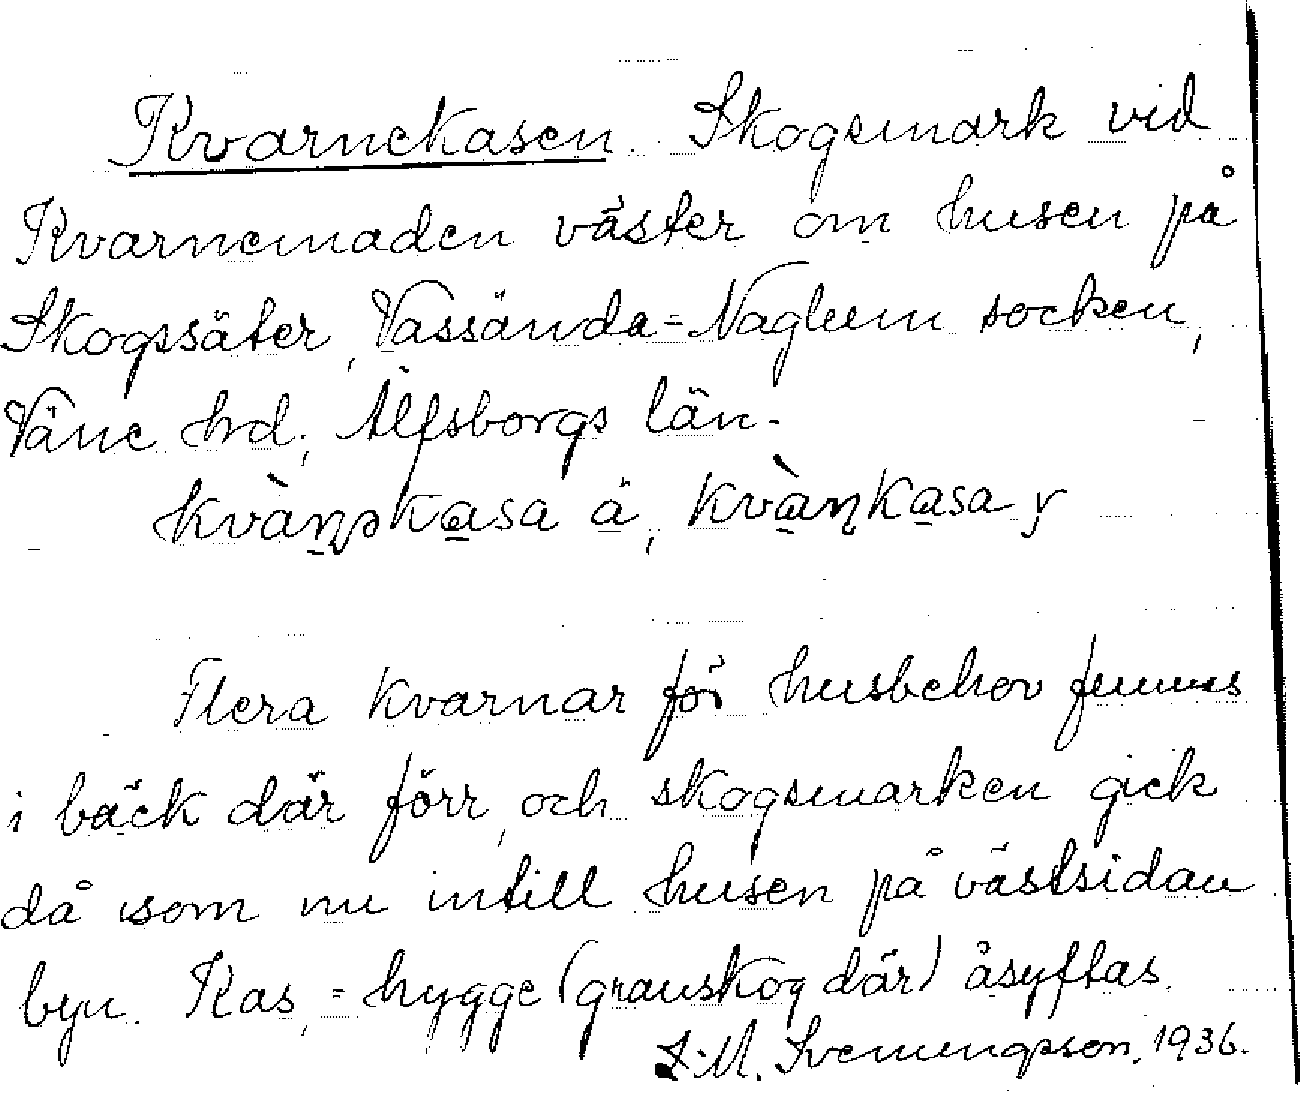 Kvarnekasen. Skogsmark vid
Kvarnemaden väster om husen på
Skogssäter, Vassända-Naglum socken,
Väne hrd, Älfsborgs län.
kvàn̠ək̠asa ä, kvàṉkasa y
Flera kvarnar för husbehov funnos
i bäck där förr, och skogsmarken gick
då som nu intill husen på västsidan
byn. Kas, = hygge (granskog där) åsyftas.
Svenungsson, 1936.